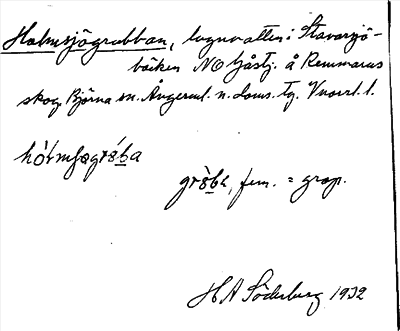 Holmsjögrubban, lugnvatten i Stavarsjö-
bäcken NO Gåstj. å Remmaren
skog Björna sn. Ångerml. n. doms. tg. 
hólmsøgróba
gróba, fem. = grop.
H A Söderberg 1932